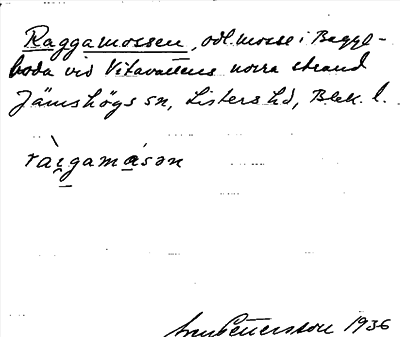 Raggamossen, odl. mosse i Baggle-
boda vid Vitavattens norra strand
Jämshögs sn, Listers hd, Blek. l.
ràigamǻsən
1936